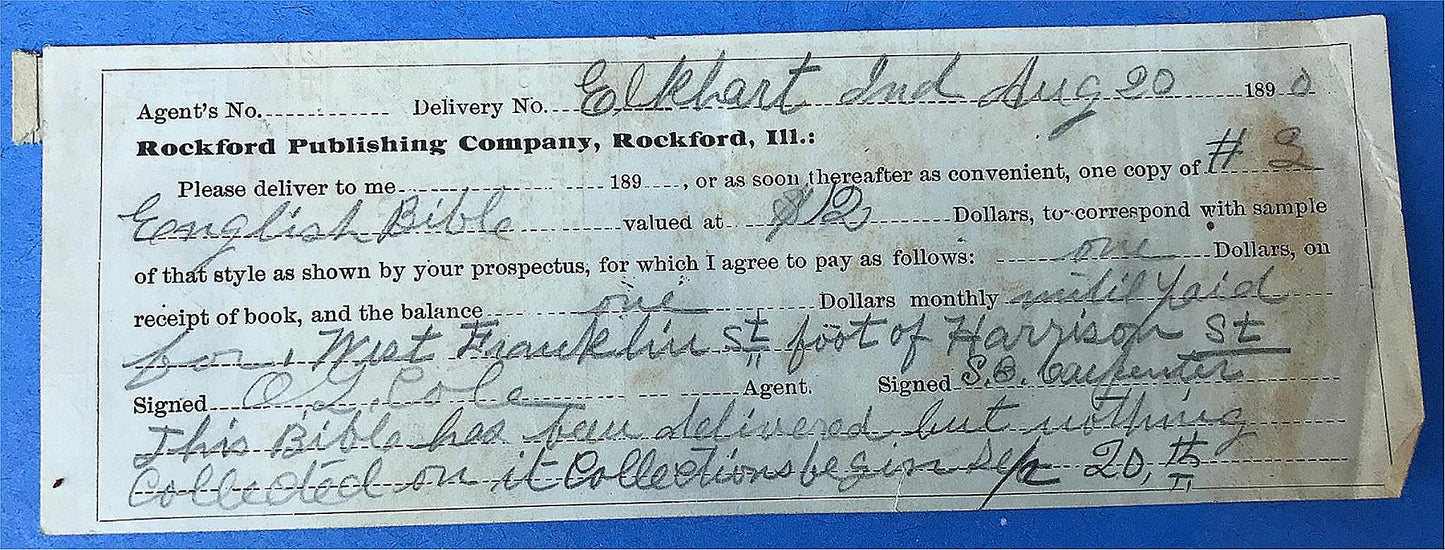 Agent's No. Delivery No. Elkhart Ind Aug 20 1890
Rockford Publishing Company, Rockford, Ill.:
Please deliver to me 189 , or as soon thereafter as convenient, one copy of # 3
Eenglish Bible valued at $12 Dollars, to correspond with sample
of that style as shown by your prospectus, for which I agree to pay as follows: one Dollars, on
receipt of book, and the balance one Dollars monthly until paid
for, West Franklin St foot of Harrison St
Signed O. L. Cole Agent. Signed S.B. Carpenter
This Bible has been delivered but nothing
Collected on it Collections begin Sep 20,th